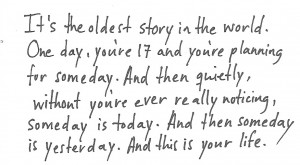 It's the oldest story in the world.
One day, you're 17 and you're planning
for someday. And then quietly,
without you're ever really noticing,
someday is today. And then someday
is yesterday. And this is your life.